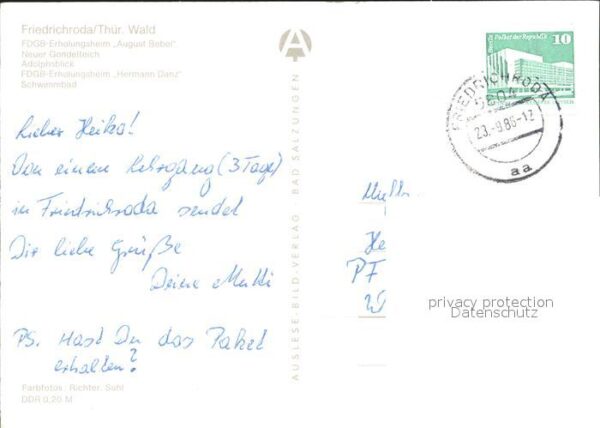 Friedrichroda/Thür. Wald
FDGB-Erholungsheim „August Bebel“,
Neuer Gondelteich
Adolphsblick
FDGB-Erholungsheim „Hermann Danz“
Schwimmbad
Lieber Heiko!
Von einem Lehrgang (3 Tage)
in Friedrichroda sendet
Dir liebe Grüße
Deine Mutti
PS. Hast Du das Paket
erhalten?
Farbfotos: Richter, Suhl
DDR 0,20 M
AUSLESE-BILD-VERLAG BAD SALZUNGEN
A
Palast der Republik
10
FRIEDRICHRODA
5804
23.-9.86-12
aa
He
PF
privacy protection
Datenschutz